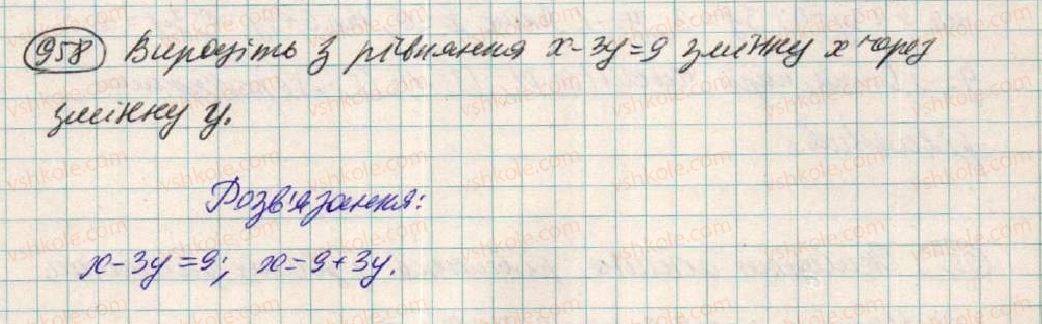 958 Виразіть з рівняння x-3y=9 змінну x через
змінну y.
Розв'язання:
x-3y=9; x=9+3y.